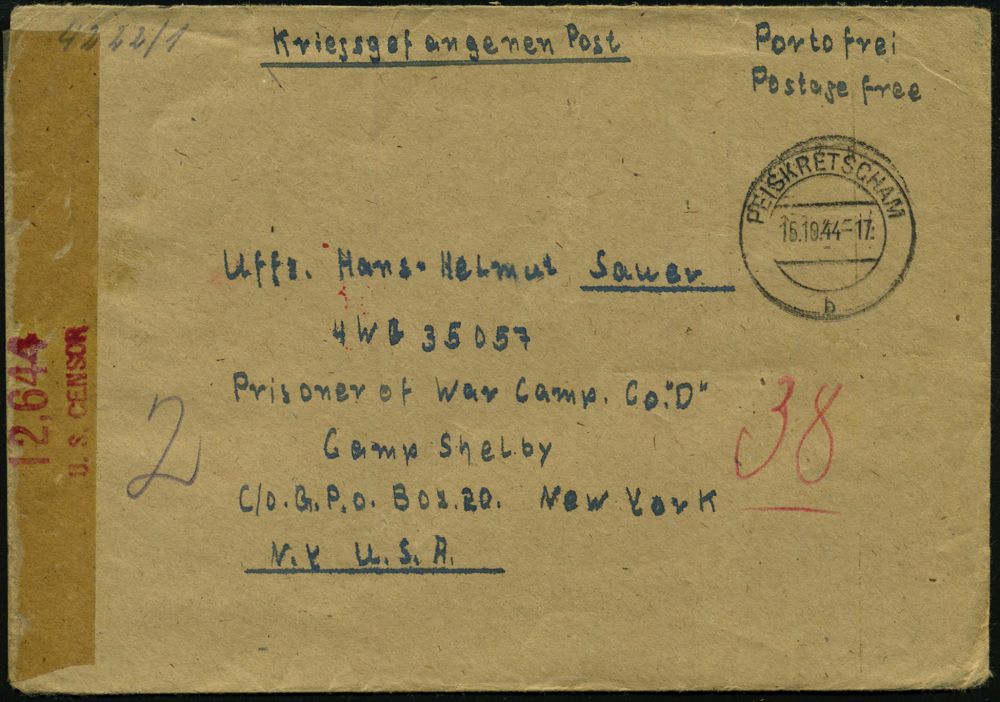 4222/1
Kriegsgefangenen Post
Portofrei
Postage free
PEISKRETSCHAM
16.10.44-17
b
Uffz. Hans-Helmut Sauer
4WG 35057
Prisoner of War Camp. Co."D"
Camp Shelby
C/o.G.P.O. Box.20. New York
N.Y U.S.A.
12,644
U. S. CENSOR
2
38